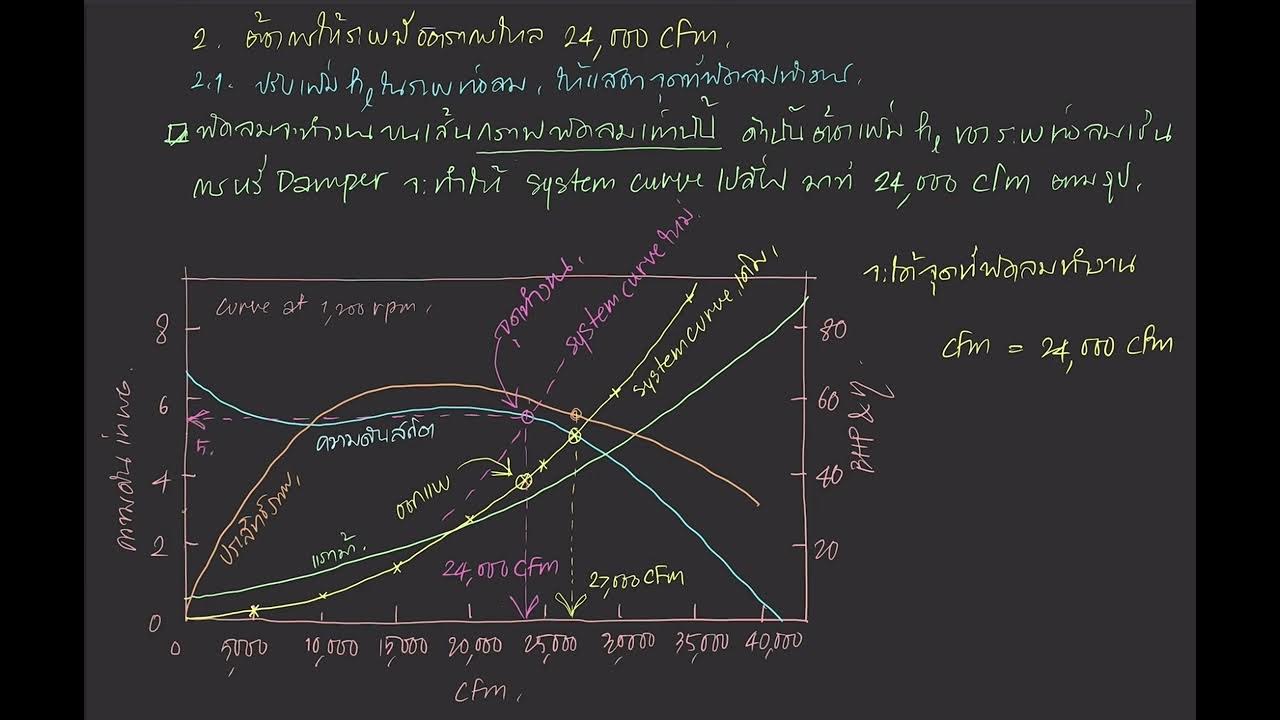 2. ต้องการให้ระบบมีอัตราการไหล 24,000 cfm.
2.1. ปรับเพิ่ม hℓ ในระบบท่อลม, ให้แสดงจุดที่พัดลมทำงาน.
พัดลมจะทำงานบนเส้นกราฟพัดลมเท่านั้น ดังนั้นต้องเพิ่ม hℓ ของระบบท่อลมเช่น
การหรี่ Damper จะทำให้ system curve ไปสิ้นที่ 24,000 cfm ตามรูป.
จะได้จุดที่พัดลมทำงาน
cfm = 24,000 cfm
curve at 1,200 rpm.
จุดทำงาน.
system curve ใหม่.
system curve เดิม.
ความดันสถิต
ออกแบบ
ประสิทธิภาพ.
แรงม้า.
24,000 cfm
27,000 cfm
5.
8
6
4
2
0
80
60
40
20
BHP & η.
0 5,000 10,000 15,000 20,000 25,000 30,000 35,000 40,000
cfm.